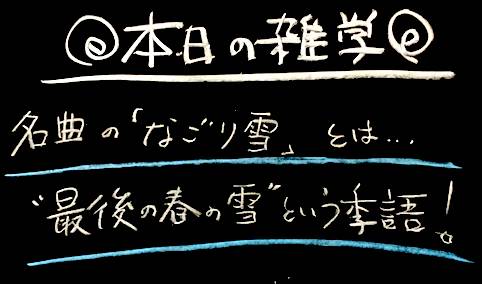 @本日の雑学@
名曲の「なごり雪」とは...
"最後の春の雪"という季語!